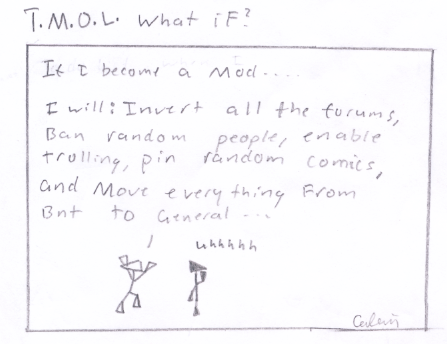 T.M.O.L. What if?
If I become a Mod....
I will: Invert all the forums,
Ban random people, enable
trolling, pin random comics,
and Move everything From
Bnt to General...
uhhhhh